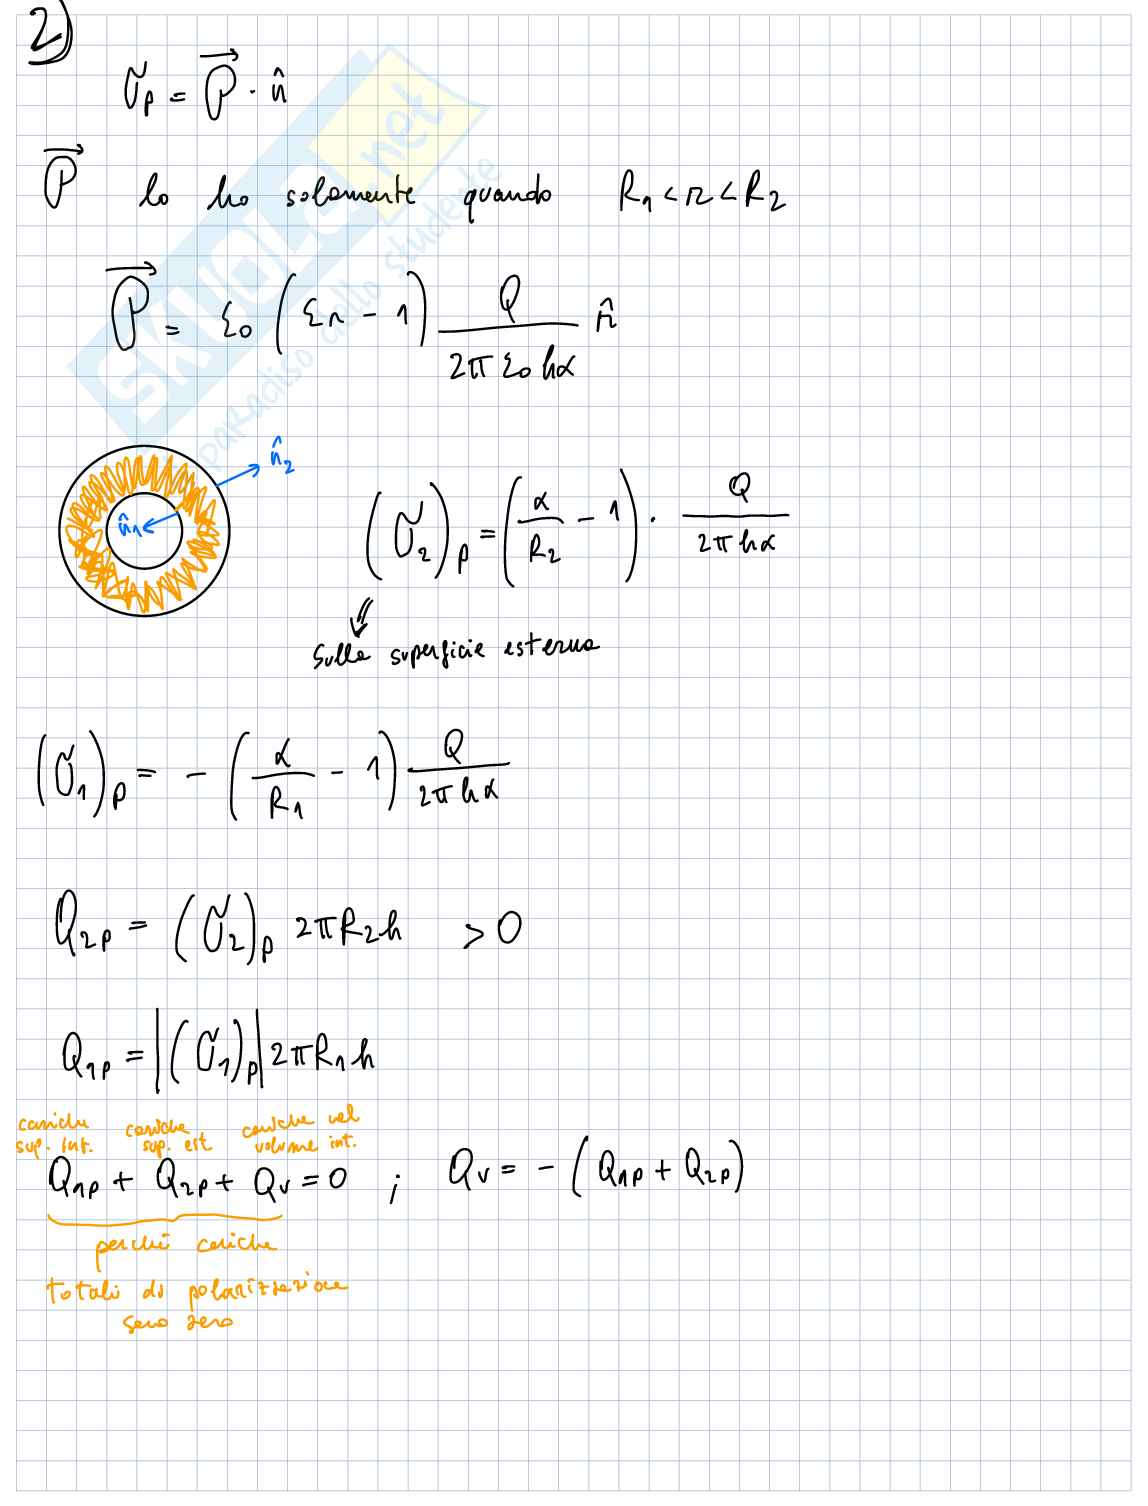 2)
σ_p = P⃗ · n̂
P⃗ lo ho solamente quando R₁ < r < R₂
P⃗ = ε₀ (εr - 1) Q / (2π ε₀ hα) r̂
n̂₂
n̂₁
(σ₂)_p = (α/R₂ - 1) · Q / (2π hα)
sulla superficie esterna
(σ₁)_p = - (α/R₁ - 1) Q / (2π hα)
Q₂p = (σ₂)_p 2πR₂h > 0
Q₁p = |(σ₁)_p| 2πR₁h
cariche sup. int. cariche sup. est cariche nel volume int.
Q₁p + Q₂p + Qv = 0 ; Qv = - (Q₁p + Q₂p)
perché cariche
totali di polarizzazione
sono zero
SKUOLA.net
paradiso dello studente